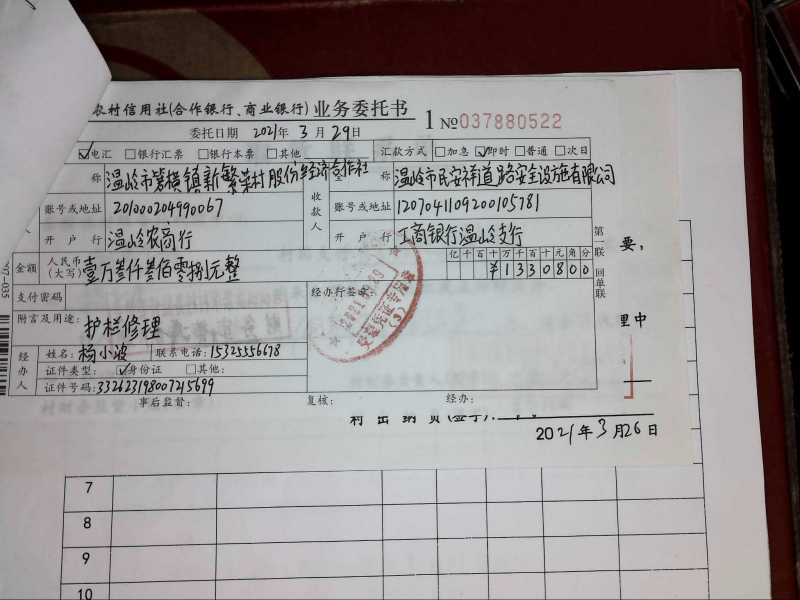 农村信用社(合作银行、商业银行) 业务委托书 1 №037880522
委托日期 2021年 3 月 29日
☑电汇 □银行汇票 □银行本票 □其他 汇款方式 □加急 ☑即时 □普通 □次日
称 温岭市箬横镇新繁荣村股份经济合作社 称 温岭市民安祥道路安全设施有限公司
账号或地址 201000204990067 收款人 账号或地址 1207041109200105781
开户行 温岭农商行 开户行 工商银行温岭支行
金额 人民币(大写) 壹万叁仟叁佰零捌元整 亿千百十万千百十元角分
¥1330800
支付密码 经办行签章
附言及用途: 护栏修理
经办人 姓名: 杨小波 联系电话: 15325556678
证件类型: ☑身份证 □其他:
证件号码: 332623198007215699
事后监督: 复核: 经办:
第一联 回单联
受理凭证专用章
要,
里中
村出纳员(签字):
2021年3月26日
7
8
9
10